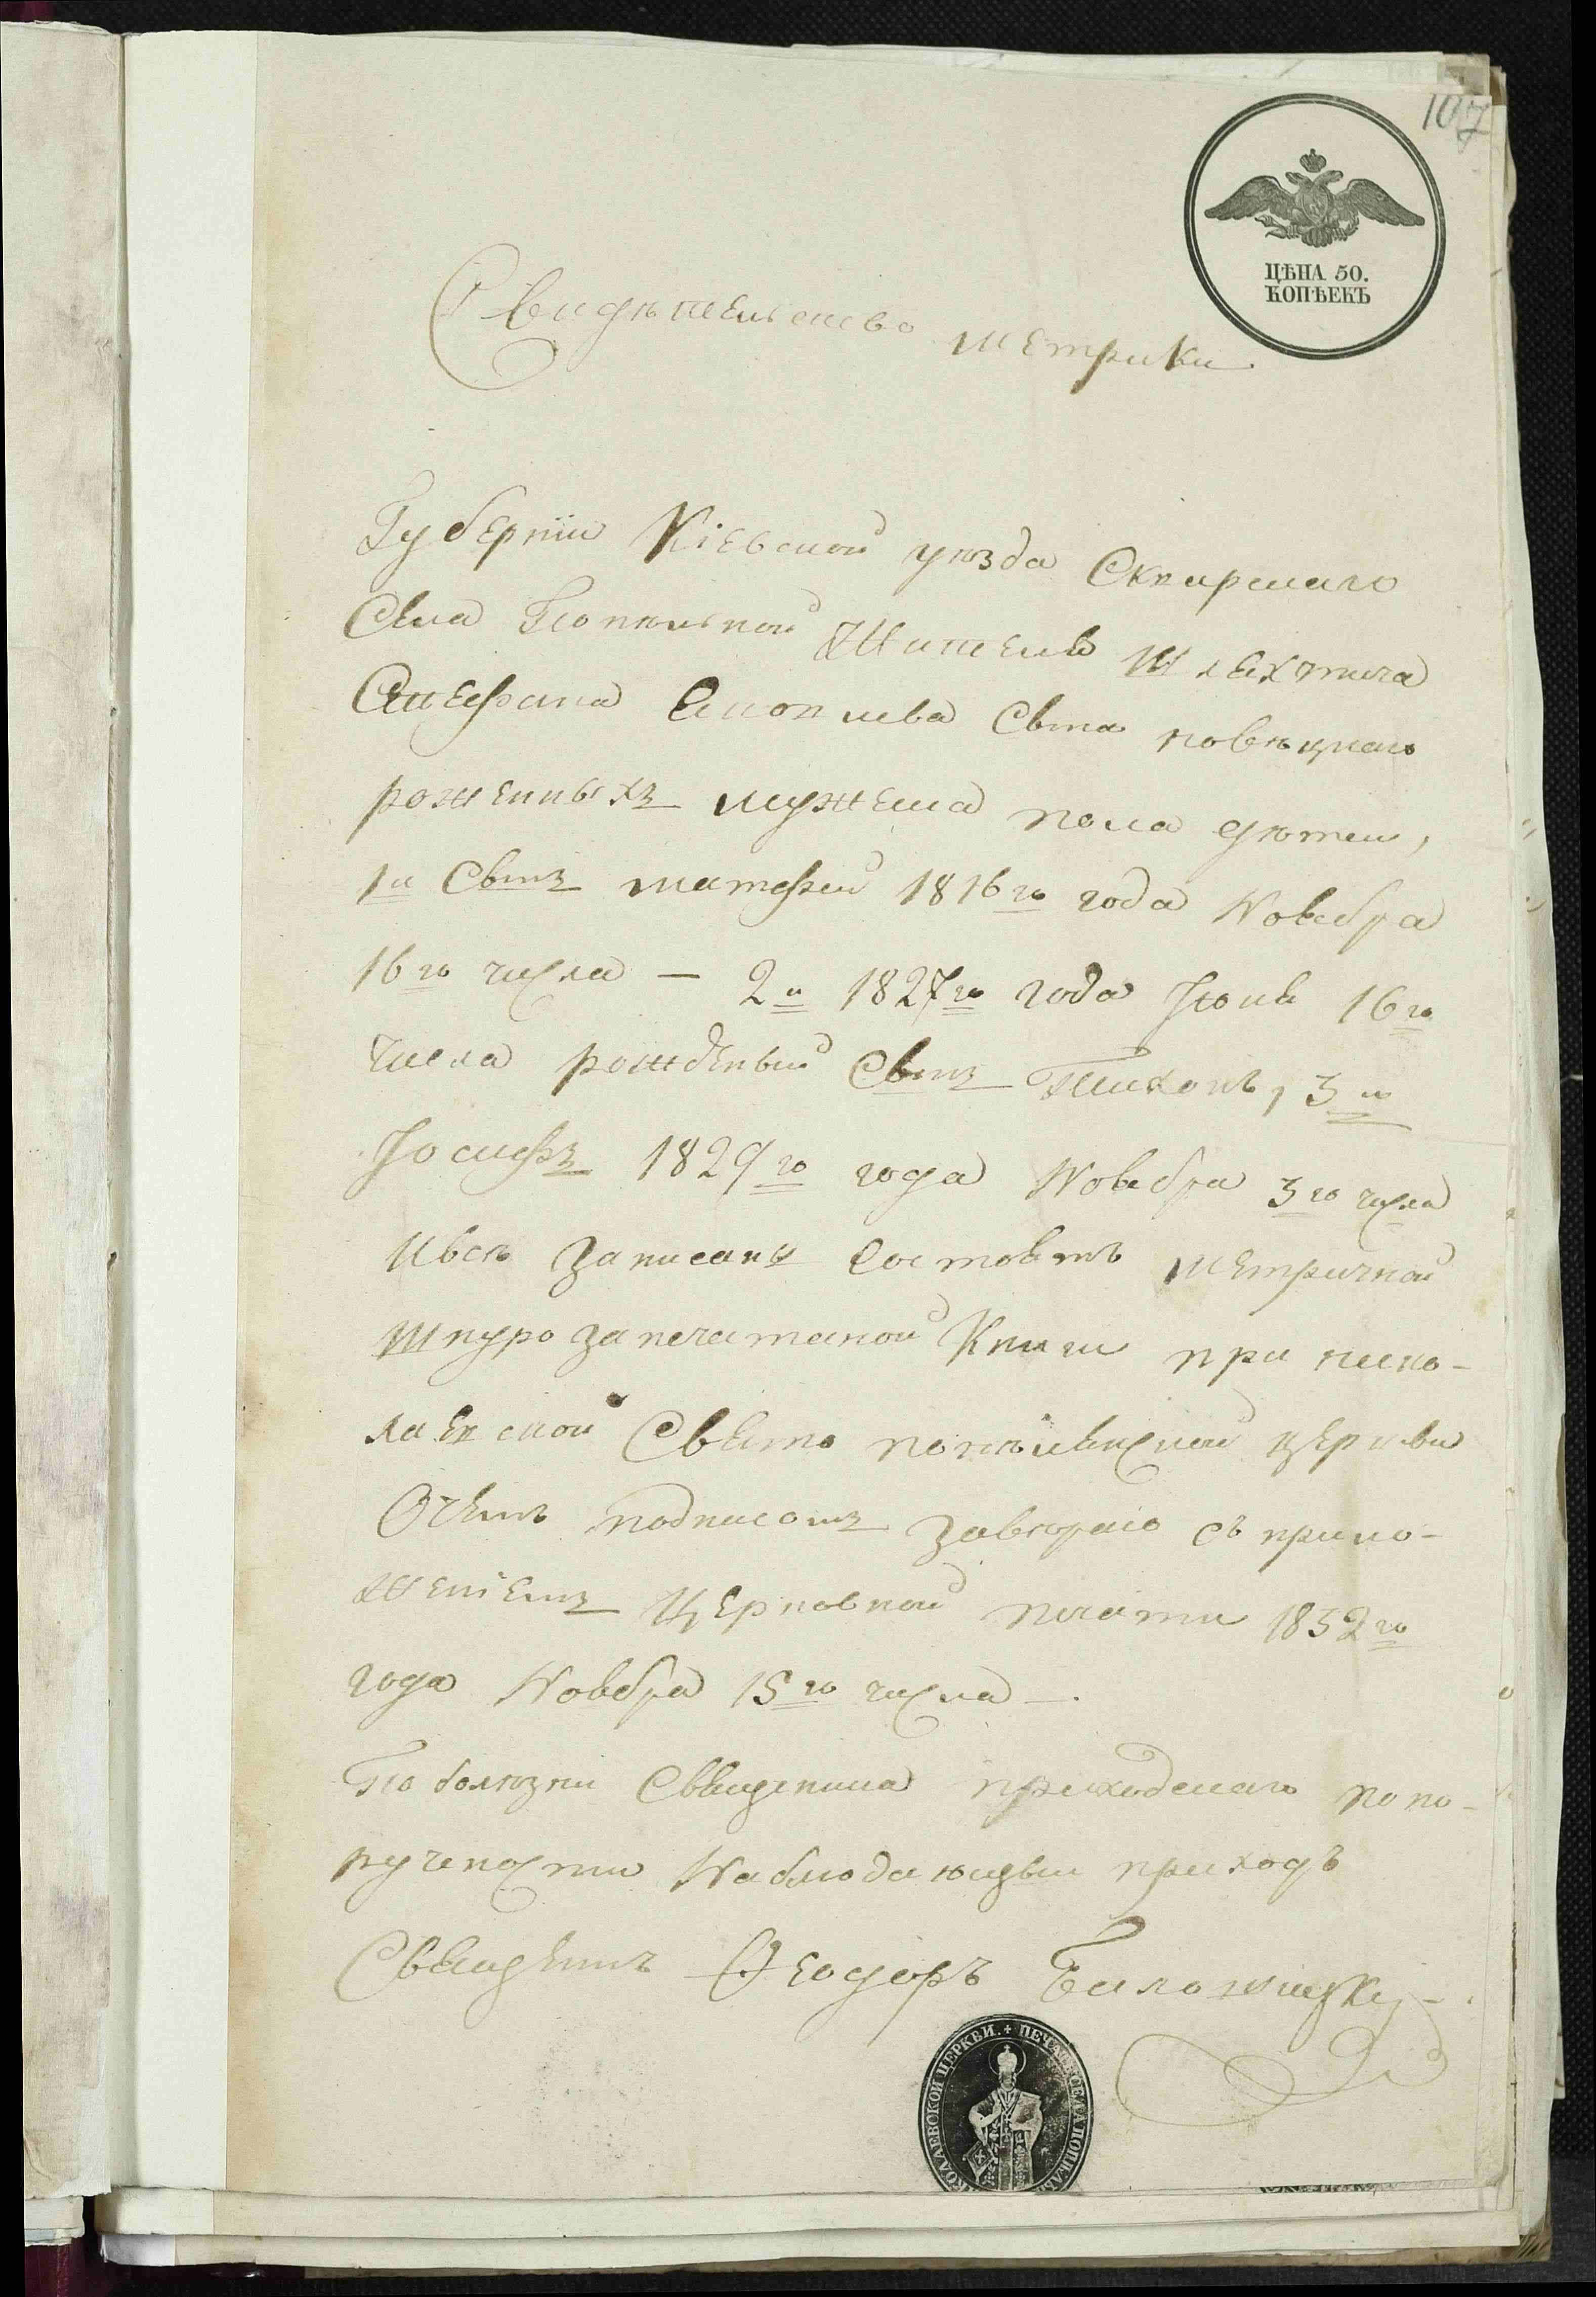 107
ЦѢНА 50.
КОПѢЕКЪ
Свидѣтельство метрики
Губернїи Кіевской уѣзда Сквирскаго
Села Попѣльной Жителя Шляхтича
Стефана сына повѣцкаго
роженныхъ мужеска пола дѣтей,
1й Сынъ матфей 1816го года Новебра
16го числа — 2й 1827го года Іюня 16го
числа рожденый Сынъ Тихонъ, 3й
Іосифъ 1829го года Новебра 3го числа
ивсѣ записаны состоятъ метричной
шнурозапечатаной Книги при нико-
лаевской Свято попѣлянской церкви
Очемъ подписомъ завѣраю съ прило-
женіемъ Церковной печати 1832го
года Новебра 15го числа —.
По болѣзни Священика приходскаго по по-
ручености Наблюдающый приходъ
Священикъ Ѳеодоръ
КОЛАЕВСКОЙ ЦЕРКВИ. + ПЕЧАТЬ СЕЛА ПОПѢЛЬ